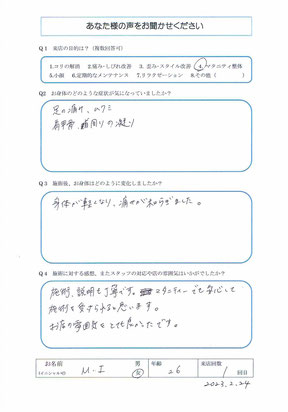 あなた様の声をお聞かせください
Q1 来店の目的は?(複数回答可)
1.コリの解消 2.痛み・しびれ改善 3.歪み・スタイル改善 4.マタニティ整体
5.小顔 6.定期的なメンテナンス 7.リラクゼーション 8.その他( )
Q2 お身体のどのような症状が気になっていましたか?
足の痛み、ムクミ
肩甲骨 周りの凝り
Q3 施術後、お身体はどのように変化しましたか?
身体が軽くなり、痛みが和らぎました。
Q4 施術に対する感想、またスタッフの対応や店の雰囲気はいかがでしたか?
施術、説明も丁寧です。マタニティーでも安心して
施術を受けられると思います。
お店の雰囲気もとても良かったです。
お名前
(イニシャル可)
M・I
男
女
年齢
26
来店回数
1
回目
2023.2.24